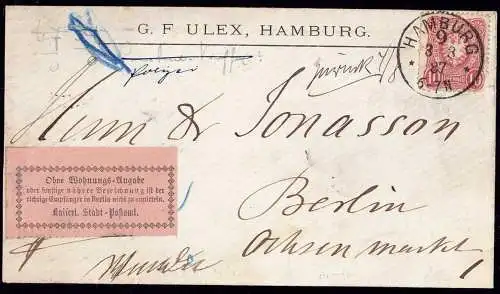 G. F ULEX, HAMBURG.
HAMBURG
9
8 3
87
6-7N
10 10
zurück
Herrn & Jonasson
Ohne Wohnungs-Angabe
oder sonstige nähere Bezeichnung ist der
richtige Empfänger in Berlin nicht zu ermitteln.
Kaiserl. Stadt-Postamt.
Berlin
Ochsenmarkt